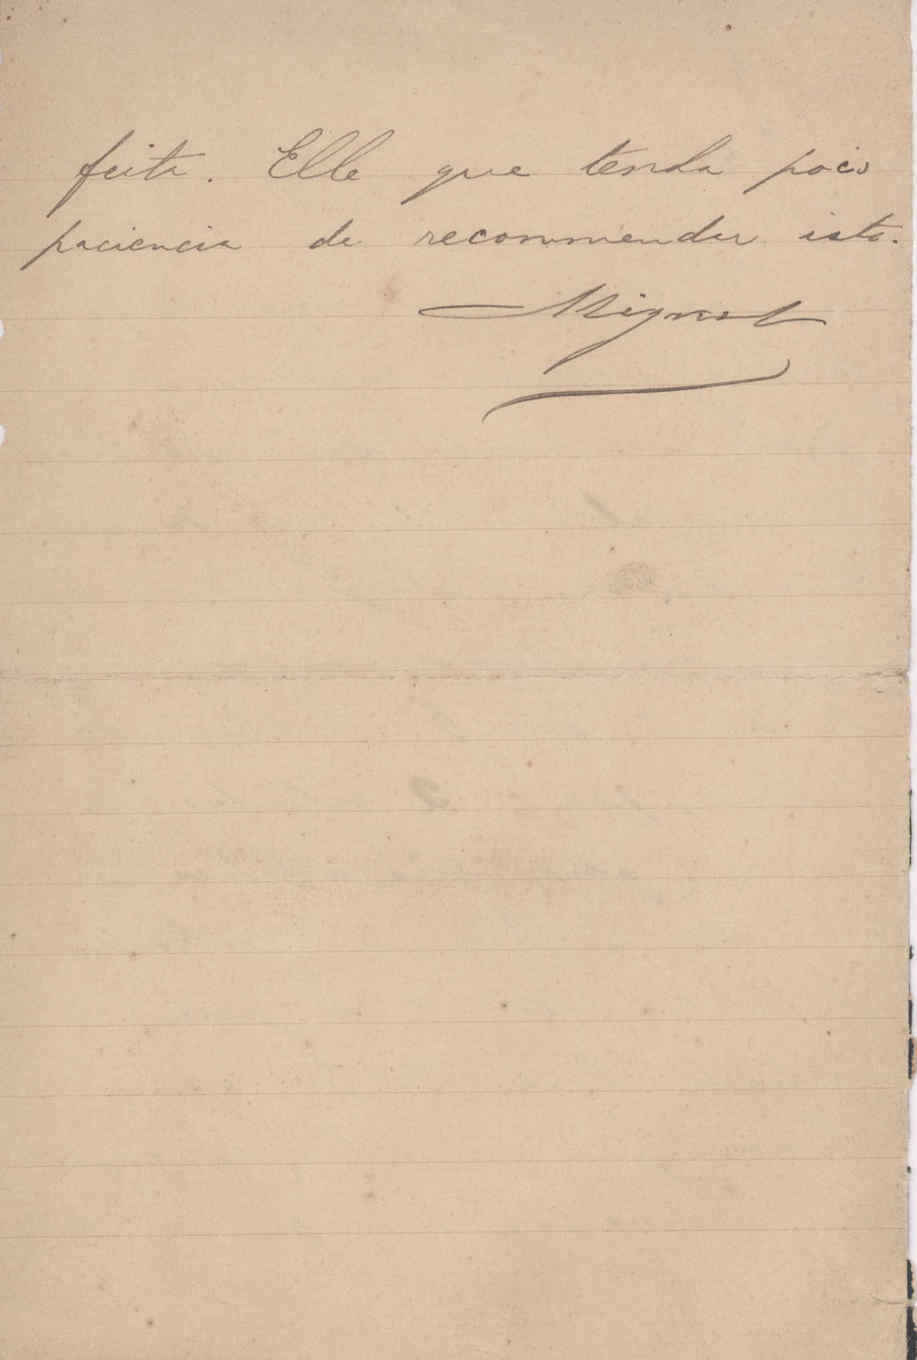 feita. Elle que tenha pois
paciencia de recommendar isto.
Miguel